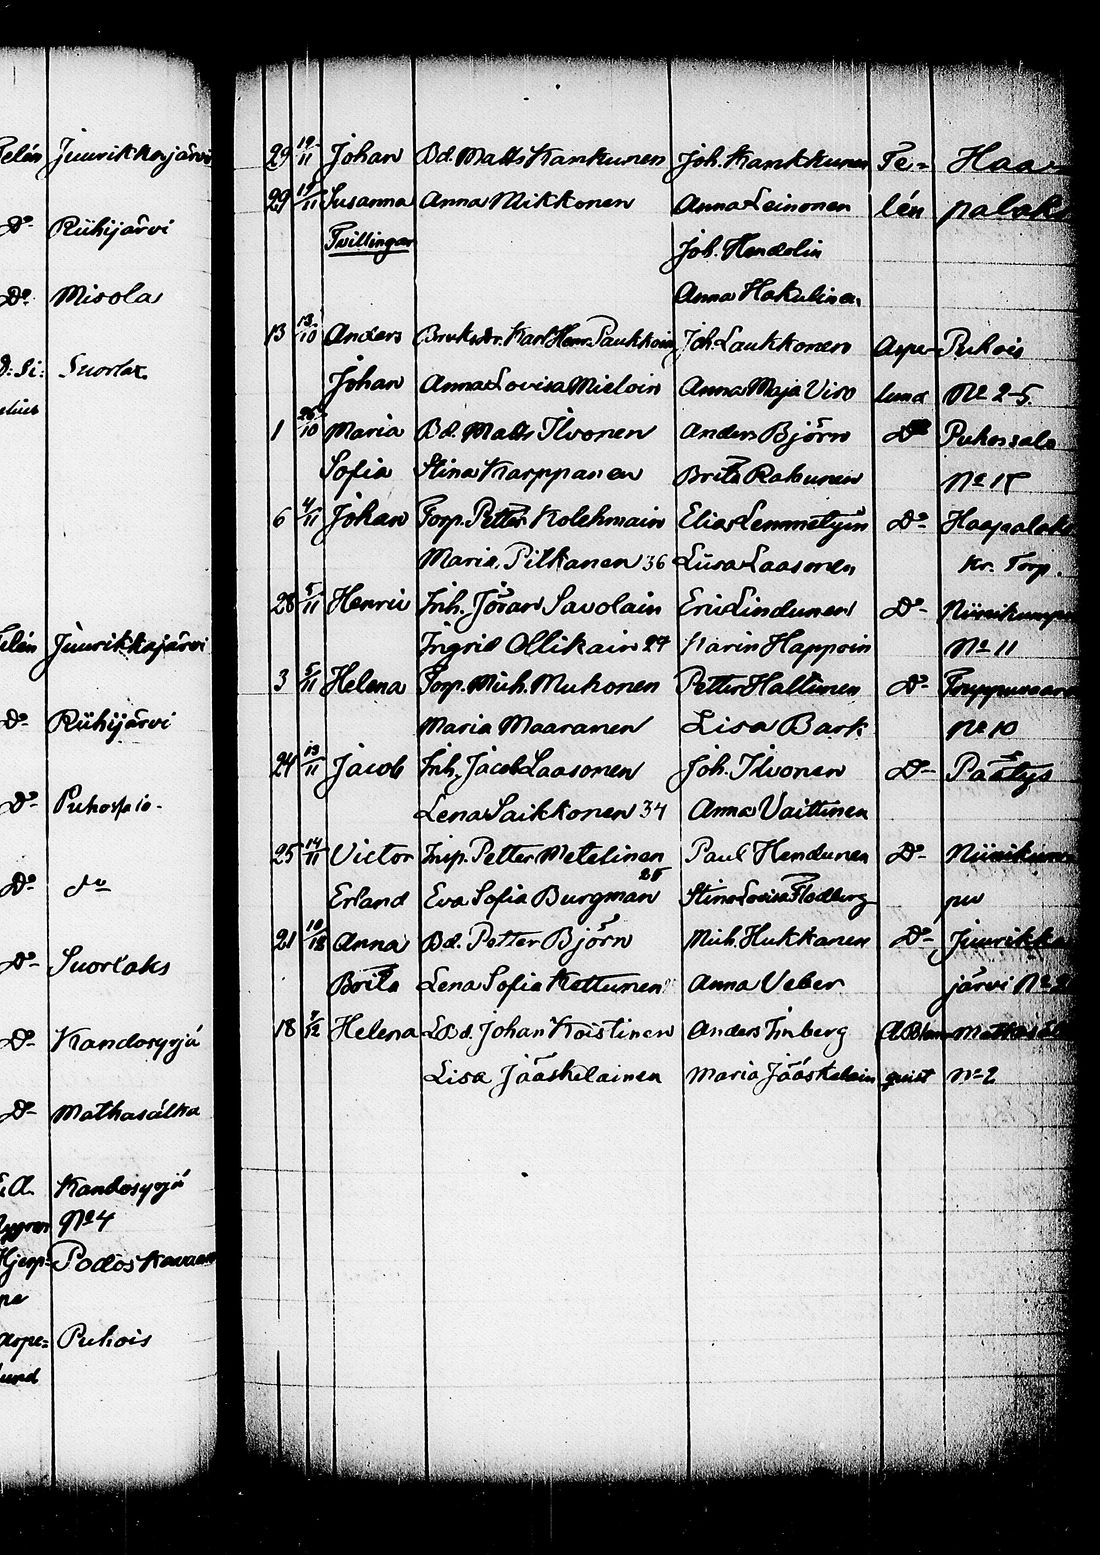 Telén Juurikkajärvi
Do Riihijärvi
Do Misola
Suorlax
Telén Juurikkajärvi
Do Riihijärvi
Do Puhospio-
Do do
Do Suorlaks
Do Kandosyrjä
Do Mathasälka
E.A. Kandosyrjä
Nygren No 4
Hjerp- Podoskavaara
pe
Aspe- Puhois
lund
29 19/11 Johan Bd. Matts Kankunen Joh. Kankkunen Te- Haa-
29 19/11 Susanna Anna Mikkonen Anna Leinonen lén palaks
Twillingar Joh. Hendolin
Anna Hakulinen
13 13/10 Anders Bruksdr. Karl Henr. Paukkoin Joh. Laukkonen Aspe- Puhois
Johan Anna Lovisa Mieloin Anna Maja Viro lund No 2-5.
1 26/10 Maria Bd. Matts Ilvonen Anders Björn Do Puhossalo
Sofia Stina Karppanen Brita Rahunen No 15
6 4/11 Johan Torp. Petter Kolehmain Elias Lemmetyin Do Haapalaks
Maria Pitkänen 36 Liisa Laasonen Kr. Torp.
28 5/11 Henric Inh. Jöran Savolain Eric Lindunen Do Niinikumpu
Ingrid Ollikain 27 Karin Happoin No 11
3 5/11 Helena Torp. Mich. Mukonen Petter Hallunen Do
Maria Maaranen Lisa Bark No 10
24 13/11 Jacob Inh. Jacob Laasonen Joh. Ilvonen Do Päätys
Lena Saikkonen 34 Anna Vaittinen
25 14/11 Victor Insp. Petter Metelinen Paul Hendunen Do Niinikum-
Erland Eva Sofia Burgman 25 Stina Lovisa Flodberg pu
21 10/18 Anna Bd. Petter Björn Mich. Hukkanen Do Juurikka
Brita Lena Sofia Kettunen Anna Veber järvi No 2
18 7/12 Helena LBd. Johan Koistinen Anders Finberg A. Blom- Mathasäl
Lisa Jääskelainen Maria Jääskelain quist No 2